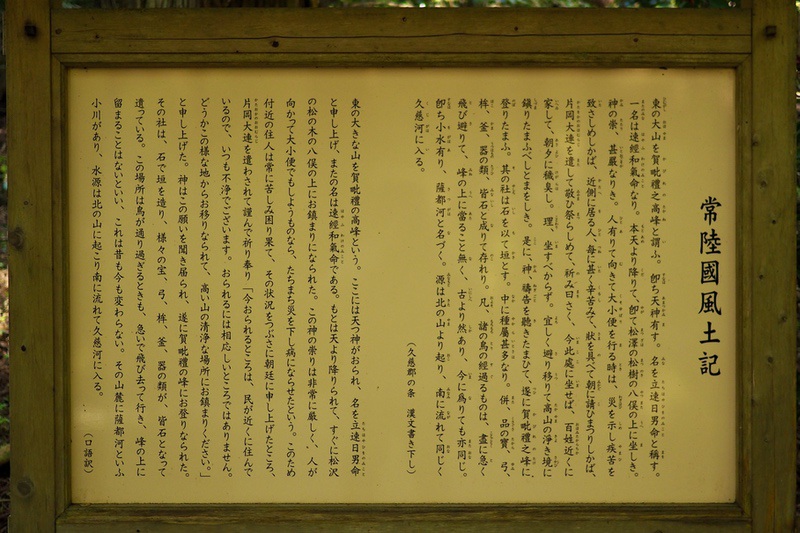 常陸國風土記
東の大山を賀毗禮之高峰と謂ふ。卽ち天神有す。名を立速日男命と稱す。
一名は速經和氣命なり。本天より降りて、卽て松澤の松樹の八俣の上に坐しき。
神の祟、甚嚴なりき。人有りて向きて大小便を行る時は、災を示し疾苦を
致さしめしかば、近側に居る人、每に甚く辛苦みて、狀を具べて朝に請ひまつりしかば、
片岡大連を遣して敬ひ祭らしめて、祈み曰さく、今此處に坐せば、百姓近くに
家して、朝夕に穢臭し。理、坐すべからず。宜しく避り移りて高山の淨き境に
鎭りたまふべしとまをしき。是に、神、禱告を聽きたまひて、遂に賀毗禮之峰に
登りたまふ。其の社は石を以て垣とす。中に種屬甚多なり。併、品の寶、弓、
桙、釜、器の類、皆石と成りて存れり。凡、諸の鳥の經過るものは、盡に急く
飛び避りて、峰の上に當ること無く、古より然あり、今に爲りても亦同じ。
卽ち小水有り、薩都河と名づく。源は北の山より起り、南に流れて同じく
久慈河に入る。
（久慈郡の条　漢文書き下し）
東の大きな山を賀毗禮の高峰という。ここには天つ神がおられ、名を立速日男命
と申し上げ、またの名は速經和氣命である。もとは天より降りられて、すぐに松沢
の松の木の八俣の上にお鎮まりになられた。この神の祟りは非常に厳しく、人が
向かって大小便でもしようものなら、たちまち災を下し病にならせたという。このため
付近の住人は常に苦しみ困り果て、その状況をつぶさに朝廷に申し上げたところ、
片岡大連を遣わされて謹んで祈り奉り「今おられるところは、民が近くに住んで
いるので、いつも不浄でございます。おられるには相応しいところではありません。
どうかこの様な地からお移りなられて、高い山の清浄な場所にお鎮まりください。」
と申し上げた。神はこの願いを聞き届られ、遂に賀毗禮の峰にお登りなられた。
その社は、石で垣を造り、様々の宝、弓、桙、釜、器の類が、皆石となって
遺っている。この場所は鳥が通り過ぎるときも、急いで飛び去って行き、峰の上に
留まることはないといい、これは昔も今も変わらない。その山麓に薩都河といふ
小川があり、水源は北の山に起こり南に流れて久慈河に入る。
（口語訳）